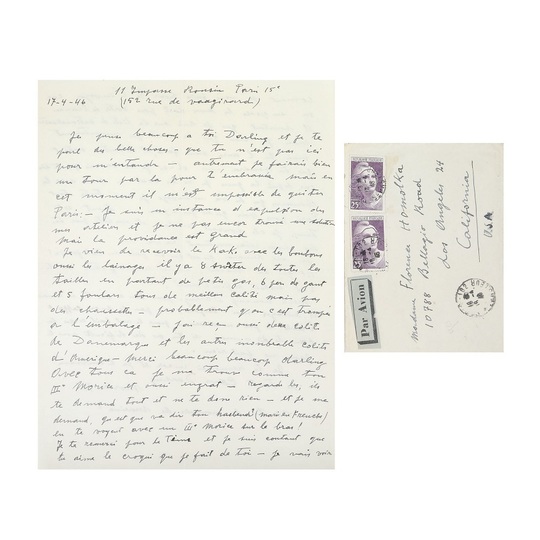 11 Impasse Ronsin Paris 15e
17-4-46 (152 rue de vaugirard)
Je pense beaucoup a toi Darling et je te
parl des belles choses - que tu n'est pas ici
pour m'entandre - autrement je fairais bien
un tour par la pour t'embrasse mais en
cet moment il m'est impossible de quiter
Paris. - Je suis en instance d'expulsion des
mes atelier et je ne pas encor trouvé une
Mais la providance est grand
Je vien de recevoir le avec les bonbons
aussi les lainages il y a 8 des toutes les
tailles en partant de petit gos, 6 per de gant
et 5 foulars tous de meilleur calité mais pas
des chaussettes - probablement qu'on c'est trompé
a l'embalage - J'ai recu aussi deux colits
de Danemarque et les autres inombrable colits
d'Amerique - Merci beaucoup beaucoup darling
Avec tous ca je me trouve comme ton
III° Morice et aussi engrat - regarde les, ils
te demand tout et ne te done rien - et je me
demand, qu'est que va dir ton husbend (mari en French)
en te voyant avec un III° morice sur le bras!
Je te remerci pour le et je suis contant que
tu aime le croqui que je fait de toi - Je vais voir
Par Avion
Madame Florence Homolka
10788 Bellagio Road
Los Angeles 24
California
USA